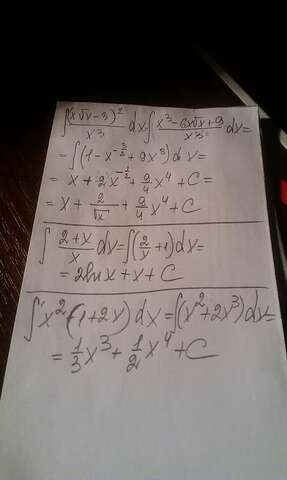 ∫(x√x-3)²/x³ dx=∫x³-6x√x+9/x³ dx=
=∫(1-x^(-3/2)+9x³)dx=
=x+2x^(-1/2)+9/4x⁴+C=
=x+2/√x+9/4x⁴+C
∫2+x/x dx=∫(2/x+1)dx=
=2lnx+x+C
∫x²(1+2x)dx=∫(x²+2x³)dx=
=1/3x³+1/2x⁴+C